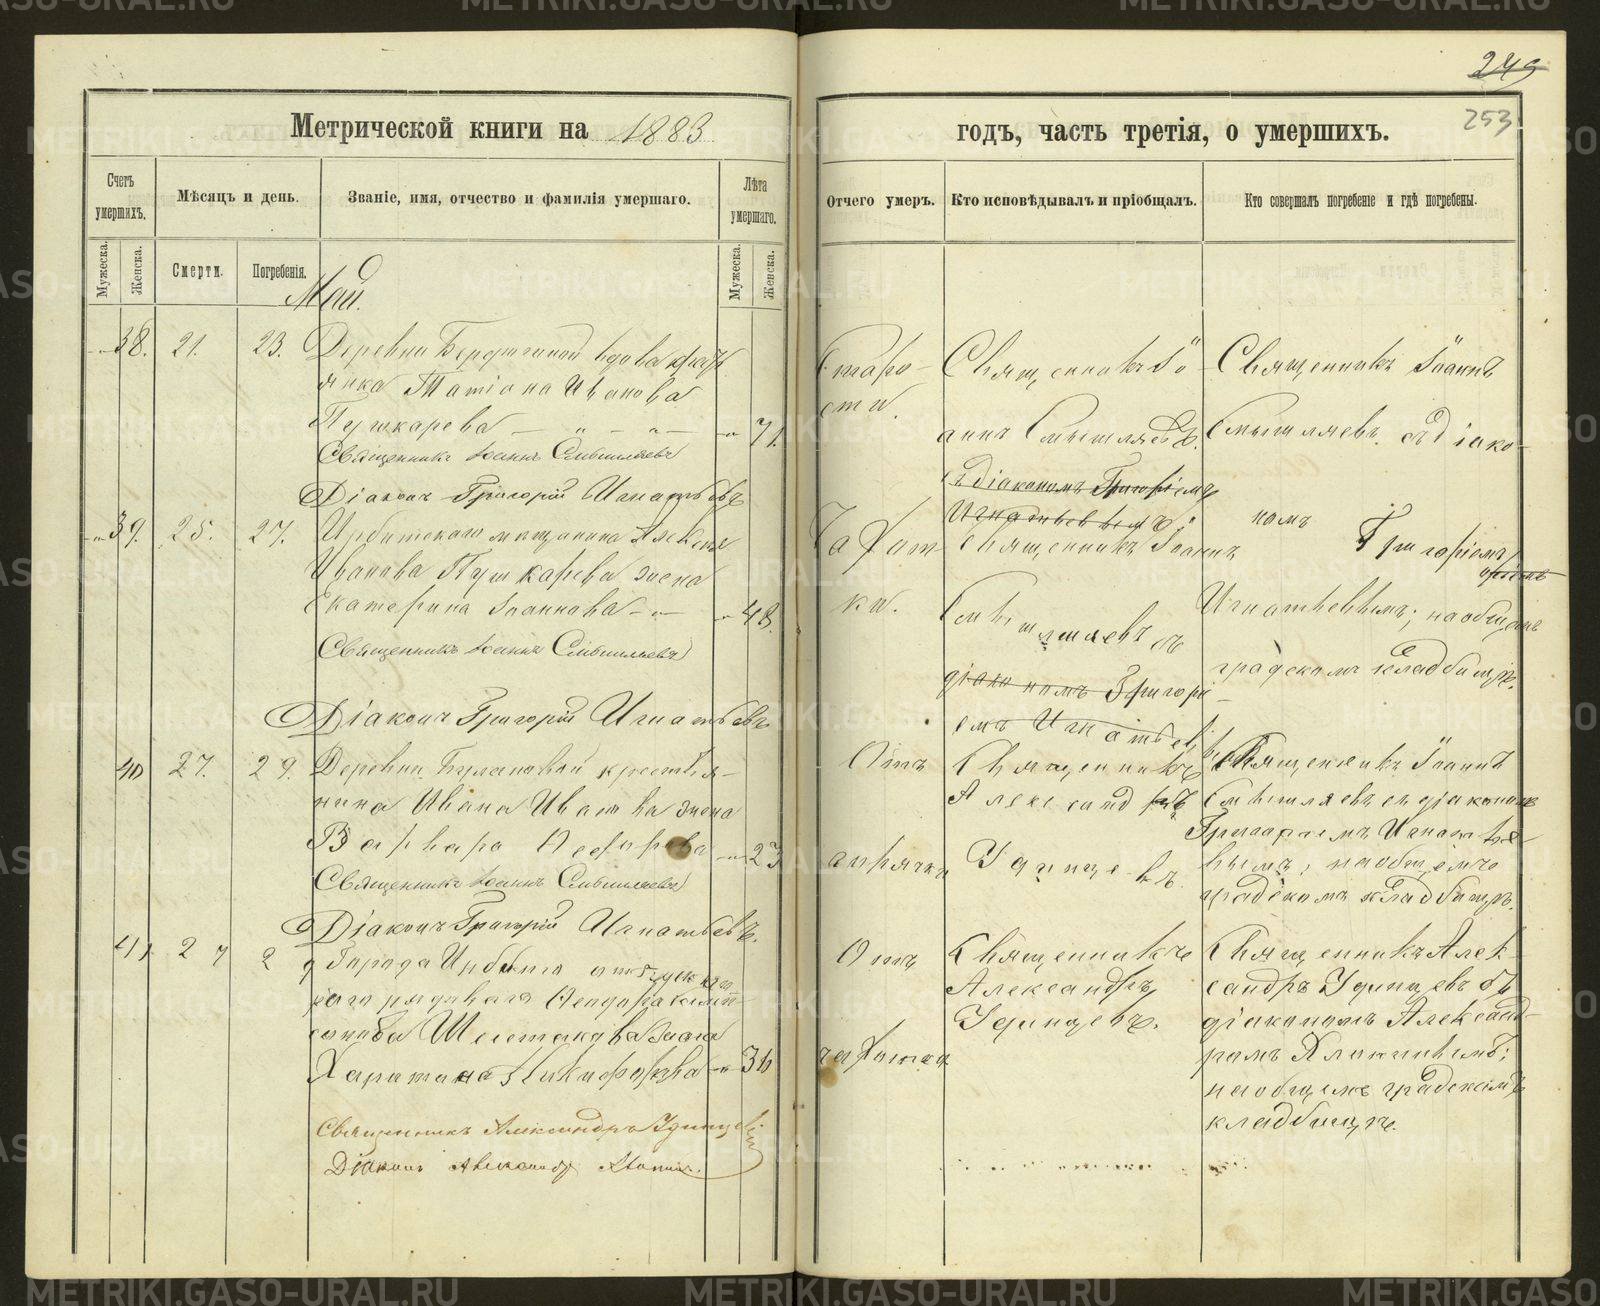 249
253
Метрической книги на 1883
годъ, часть третія, о умершихъ.
Счетъ умершихъ.
Мѣсяцъ и день.
Званіе, имя, отчество и фамилія умершаго.
Лѣта умершаго.
Отчего умеръ.
Кто исповѣдывалъ и пріобщалъ.
Кто совершалъ погребеніе и гдѣ погребены.
Мужеска.
Женска.
Смерти.
Погребенія.
Мужеска.
Женска.
Май.
38. 21. 23. Деревни вдова
Татіана Иванова
Пушкарева 71
Священникъ Іоаннъ Смышляевъ
Діаконъ Григорій Игнатьевъ
Старо-
сти.
Священникъ Іо-
аннъ Смышляевъ
съ діакономъ Григоріемъ
Игнатьевымъ
Священникъ Іоаннъ
Смышляевъ съ діако-
номъ Григоріемъ
Игнатьевымъ; на общемъ
градскомъ кладбищѣ.
39. 25. 27. Ирбитскаго мещанина Алексѣя
Иванова Пушкарева жена
Екатерина Іоаннова 48.
Священникъ Іоаннъ Смышляевъ
Діаконъ Григорій Игнатьевъ
Чахот-
ки.
Священникъ Іоаннъ
Смышляевъ съ
діакономъ Григорі-
емъ Игнатьев
40 27. 29. Деревни Булановой крестья-
нина Ивана жена
Варвара 23
Священникъ Іоаннъ Смышляевъ
Діаконъ Григорій Игнатьевъ.
Отъ
горячки
Священникъ
Александръ
Удинцевъ.
Священникъ Іоаннъ
Смышляевъ съ діакономъ
Григоріемъ Игнатье-
вымъ; на общемъ
градскомъ кладбищѣ.
41 27 29 Города Ирбита
рядоваго
Шестакова жена
Никифорова 36
Священникъ Александръ Удинцевъ
Діаконъ Александръ
Отъ
чахотки
Священникъ
Александръ
Удинцевъ.
Священникъ Алек-
сандръ Удинцевъ съ
діакономъ Александ-
ромъ
на общемъ градскомъ
кладбищѣ.
METRIKI.GASO-URAL.RU